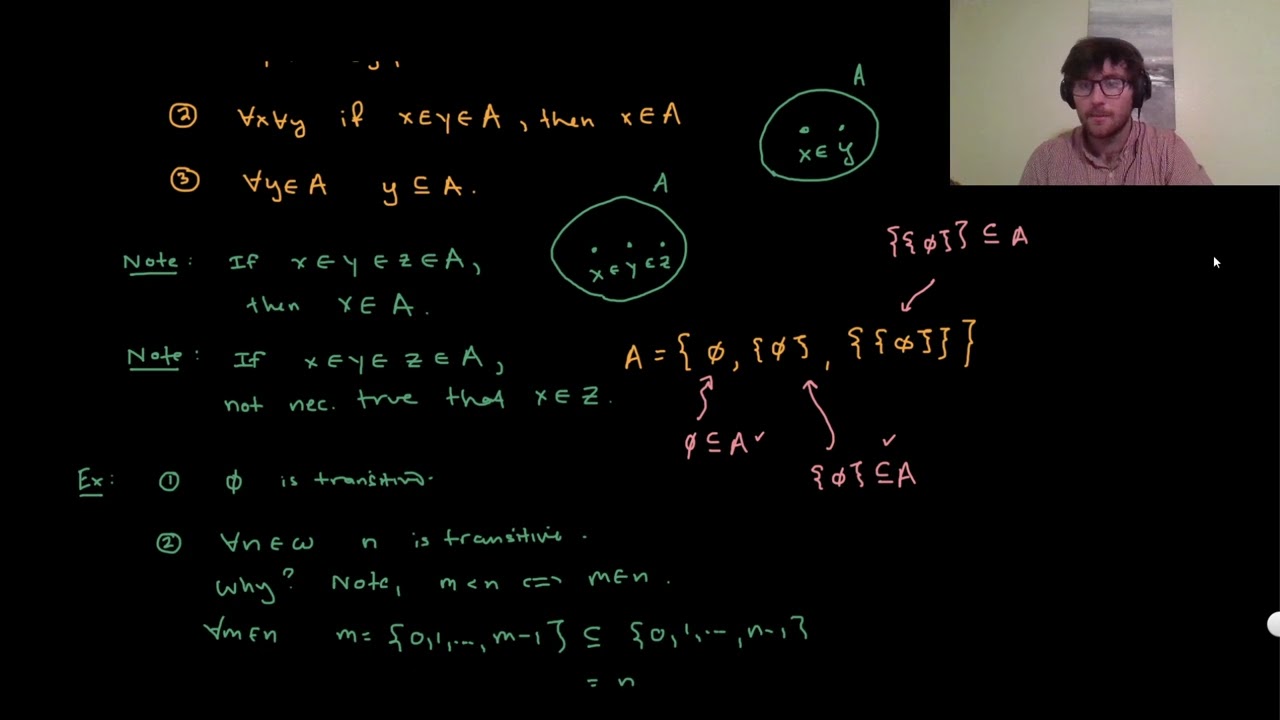 ② ∀x∀y if x∈y∈A, then x∈A
③ ∀y∈A y ⊆ A.
A
x ∈ y
A
x ∈ y ∈ z
Note: If x ∈ y ∈ z ∈ A,
then x ∈ A.
Note: If x ∈ y ∈ z ∈ A,
not nec. true that x ∈ z.
{{ϕ}} ⊆ A
A = {ϕ, {ϕ}, {{ϕ}}}
ϕ ⊆ A ✓
{ϕ} ⊆ A ✓
Ex: ① ϕ is transitive.
② ∀n ∈ ω n is transitive.
Why? Note, m < n ⟺ m ∈ n.
∀m∈n m = {0, 1, ..., m-1} ⊆ {0, 1, ..., n-1}
= n